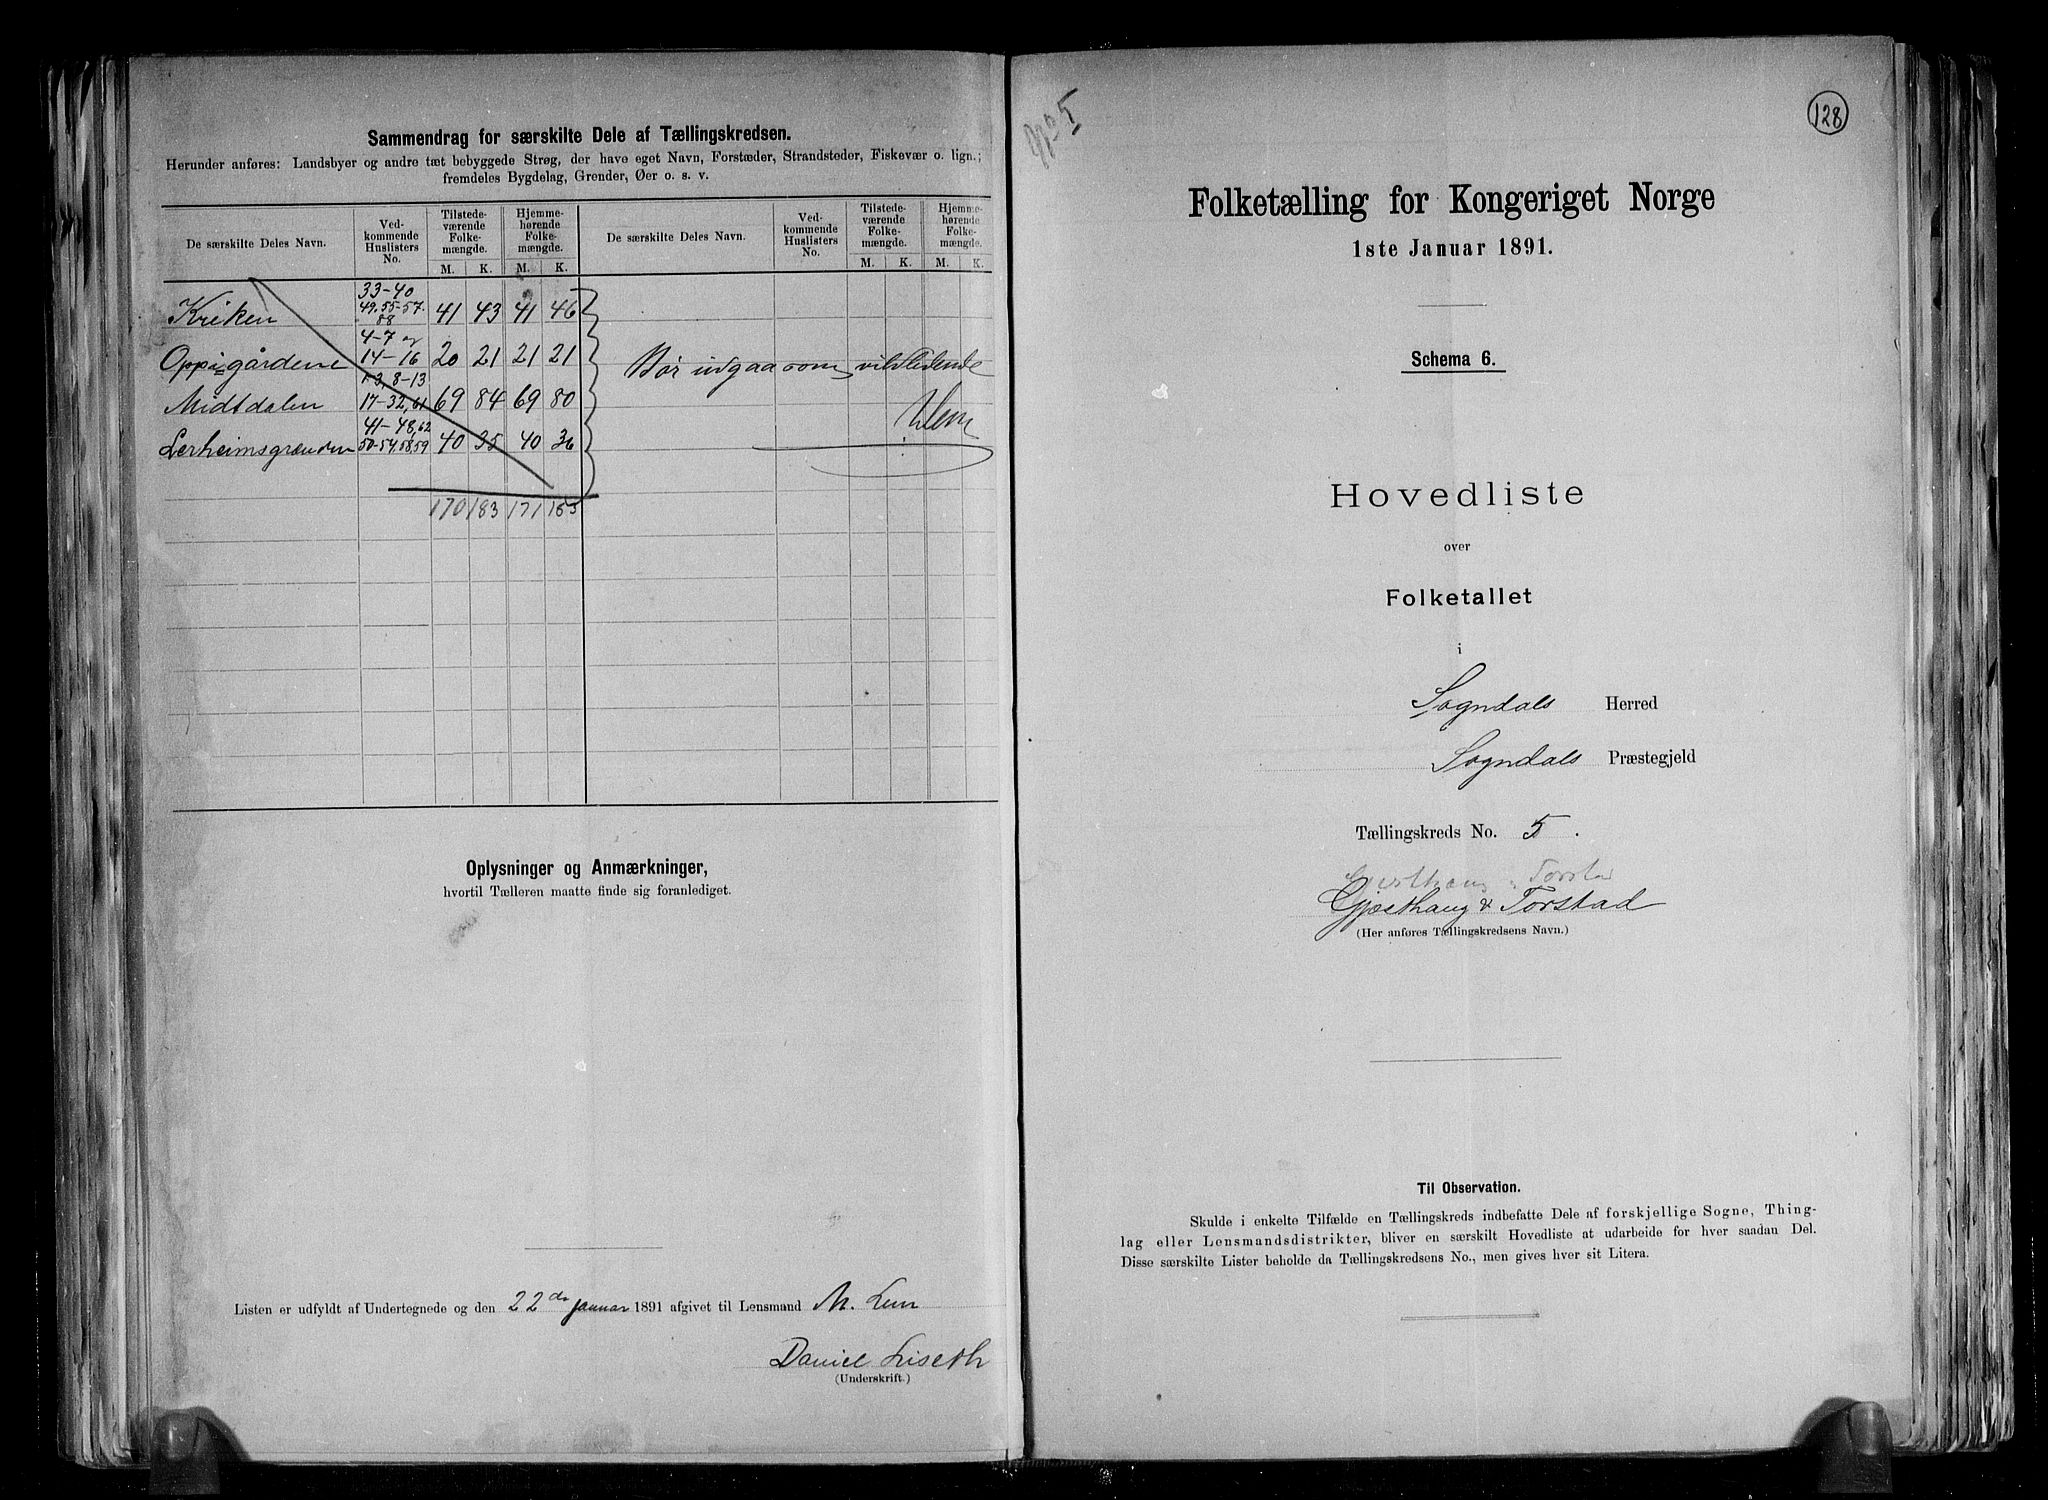 Sammendrag for særskilte Dele af Tællingskredsen.
Herunder anføres: Landsbyer og andre tæt bebyggede Strøg, der have eget Navn, Forstæder, Strandsteder, Fiskevær o. lign.;
fremdeles Bygdelag, Grender, Øer o. s. v.
De særskilte Deles Navn. Ved-kommende Huslisters No. Tilstede-værende Folke-mængde. Hjemme-hørende Folke-mængde. De særskilte Deles Navn. Ved-kommende Huslisters No. Tilstede-værende Folke-mængde. Hjemme-hørende Folke-mængde.
M. K. M. K. M. K. M. K.
33-40
Kriken 49.55-57. 88 41 43 41 46
4-7 og
Oppigårdene 14-16 20 21 21 21 Bør udgaa som vildledende
1-3, 8-13
Midtdalen 17-32, 61 69 84 69 80
41-48, 62 Lem
Lerheimsgrænden 50-54, 58, 59 40 35 40 36
170 183 171
Oplysninger og Anmærkninger,
hvortil Tælleren maatte finde sig foranlediget.
Listen er udfyldt af Undertegnede og den 22de januar 1891 afgivet til Lensmand M. Lem
Daniel Liseth
(Underskrift.)
No 5
128
Folketælling for Kongeriget Norge
1ste Januar 1891.
Schema 6.
Hovedliste
over
Folketallet
i
Sogndals Herred
Sogndals Præstegjeld
Tællingskreds No. 5.
Gjesthaug & Torstad
(Her anføres Tællingskredsens Navn.)
Til Observation.
Skulde i enkelte Tilfælde en Tællingskreds indbefatte Dele af forskjellige Sogne, Thing-
lag eller Lensmandsdistrikter, bliver en særskilt Hovedliste at udarbeide for hver saadan Del.
Disse særskilte Lister beholde da Tællingskredsens No., men gives hver sit Litera.